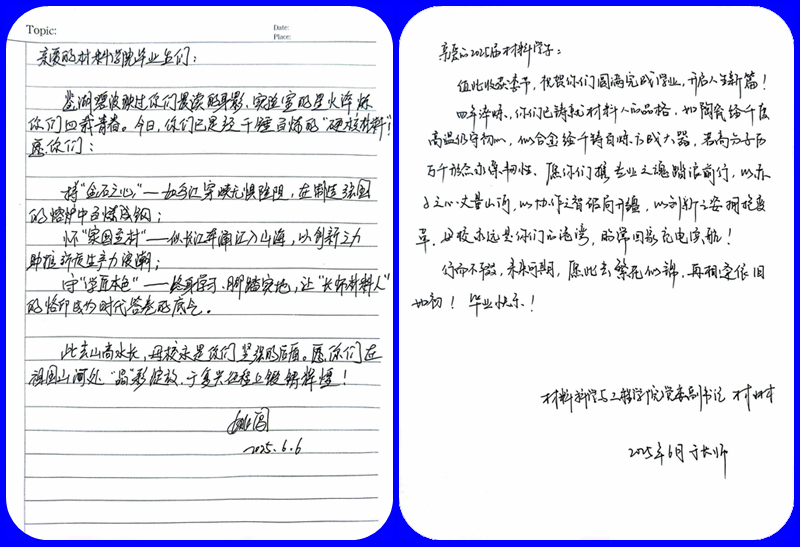 Topic:
Date:
Place:
亲爱的材料学院毕业生们:
鉴湖碧波映过你们晨读的身影,实验室的星火淬炼
你们四载青春。今日,你们已是经千锤百炼的“硬核材料”!
愿你们:
持“金石之心”——如 无惧险阻,在制造强国
的熔炉中百炼成钢;
怀“家国 材”——似长江奔涌汇入山海,以创新之力
助推新质生产力浪潮;
守“学匠本色”——终身学习、脚踏实地,让“长师材料人”
的烙印成为时代答卷的底气。
此去山高水长,母校永是你们坚强的后盾。愿你们在
祖国山河处“晶”彩绽放,于复兴征程上锻铸辉煌!
2025.6.6
亲爱的2025届材料学子:
值此收获季节,祝贺你们圆满完成学业,开启人生新篇!
四年淬炼,你们已铸就材料人的品格,如陶瓷经千度
高温仍守初心,似合金经千铸百炼方成大器,若高分子历
万千形态永葆韧性。愿你们携专业之魂踏浪前行,以赤
子之心丈量山河,以协作之智破局开疆,以创新之姿拥抱变
革,母校永远是你们的港湾,盼常回家充电续航!
行而不辍,未来可期,愿此去繁花似锦,再相逢依旧
如初!毕业快乐!
材料科学与工程学院党委副书记
2025年6月于长师